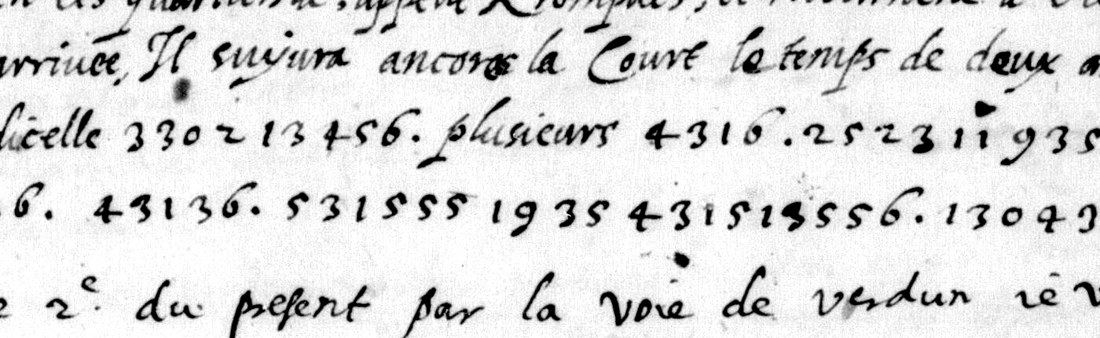 arriuee, Il suyura ancores la Court le temps de deux
dicelle 330213456. plusieurs 4316.252311935
6. 43136. 531555 1935 431513556. 13043
2e. du present par la voie de verdun ie